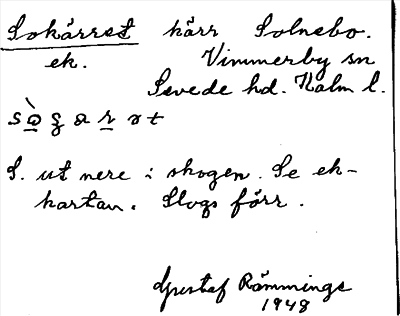 Sokärret kärr Solnebo.
ek. Vimmerby sn
Sevede hd. Kalm l.
S. ut nere i skogen. Se ek-
kartan. Slogs förr.
Gustaf Rämminge
1948